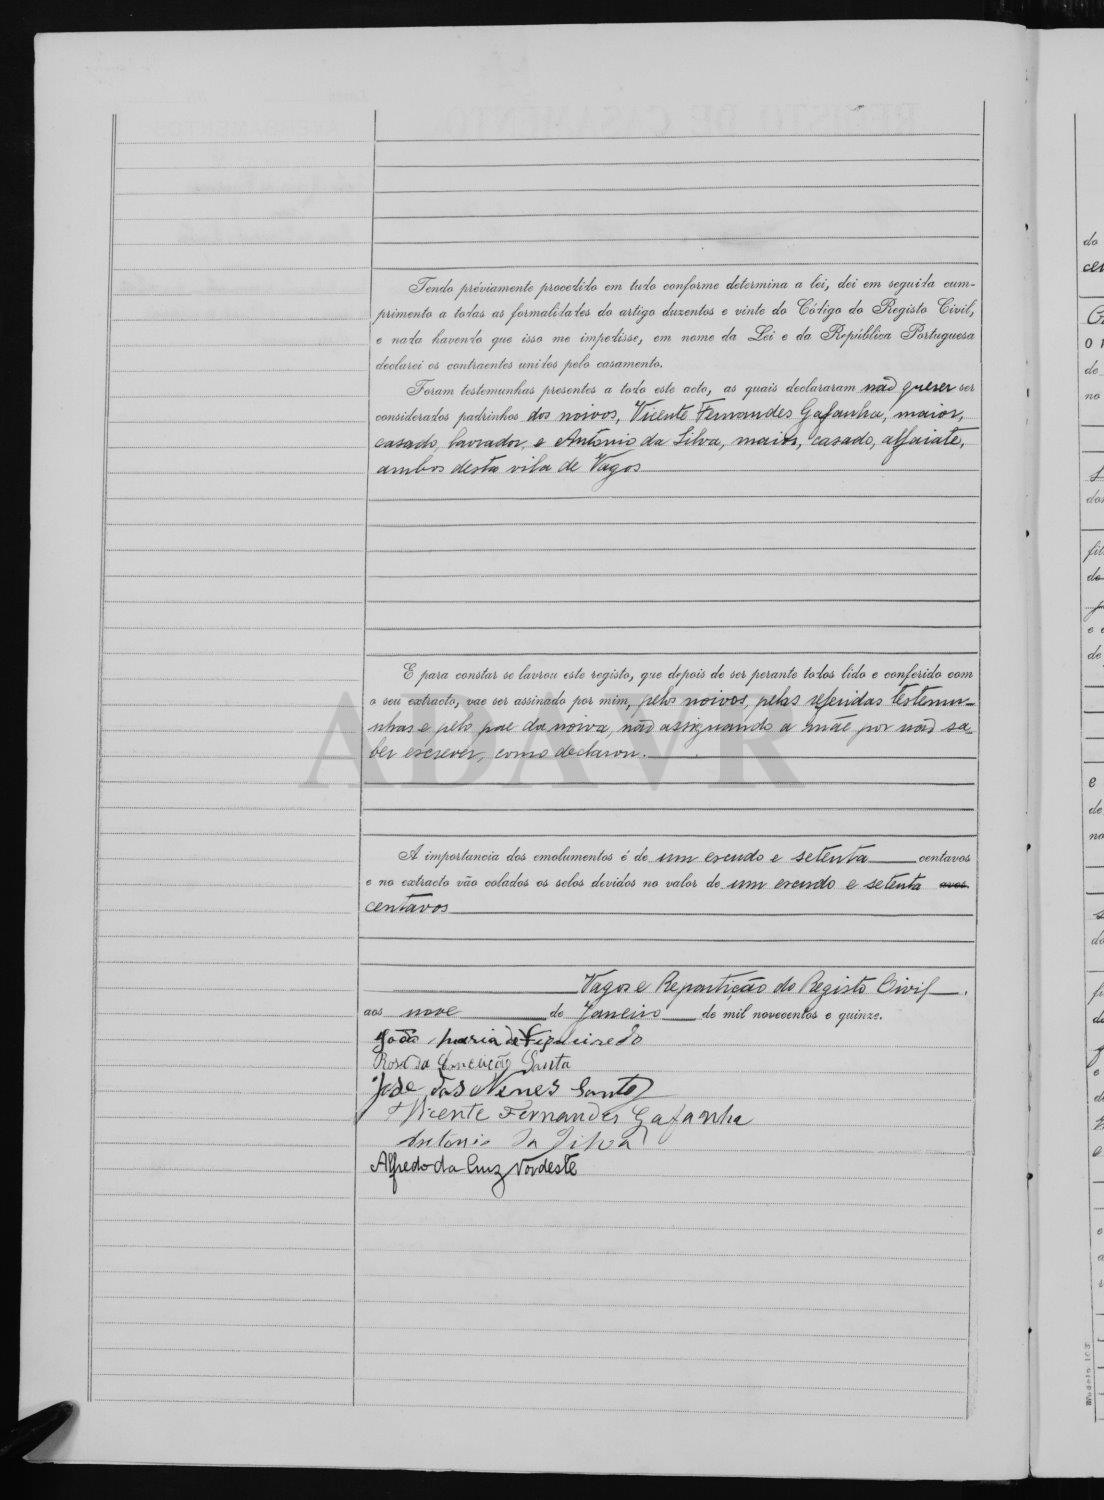 Tendo préviamente procedido em tudo conforme determina a lei, dei em seguida cum-
primento a todas as formalidades do artigo duzentos e vinte do Código do Registo Civil,
e nada havendo que isso me impedisse, em nome da Lei e da República Portuguesa
declarei os contraentes unidos pelo casamento.
Foram testemunhas presentes a todo este acto, as quais declararam não querer ser
considerados padrinhos dos noivos, Vicente Fernandes Gafanha, maior,
casado, lavrador, e António da Silva, maior, casado, alfaiate,
ambos desta vila de Vagos
E para constar se lavrou este registo, que depois de ser perante todos lido e conferido com
o seu extracto, vae ser assinado por mim, pelos noivos, pelas referidas testemu-
nhas e pelo pae da noiva, não assignando a mãe por não sa-
ber escrever, como declarou.
ADAVR
A importancia dos emolumentos é de um escudo e setenta centavos
e no extracto vão colados os selos devidos no valor de um escudo e setenta avos
centavos
Vagos e Repartição do Registo Civil.
aos nove de Janeiro de mil novecentos e quinze.
João Maria de Figueiredo
Rosa da Conceição Santa
José das Neves Santos
Vicente Fernandes Gafanha
Antonio da Silva
Alfredo da Cruz Nordeste
Modelo 103